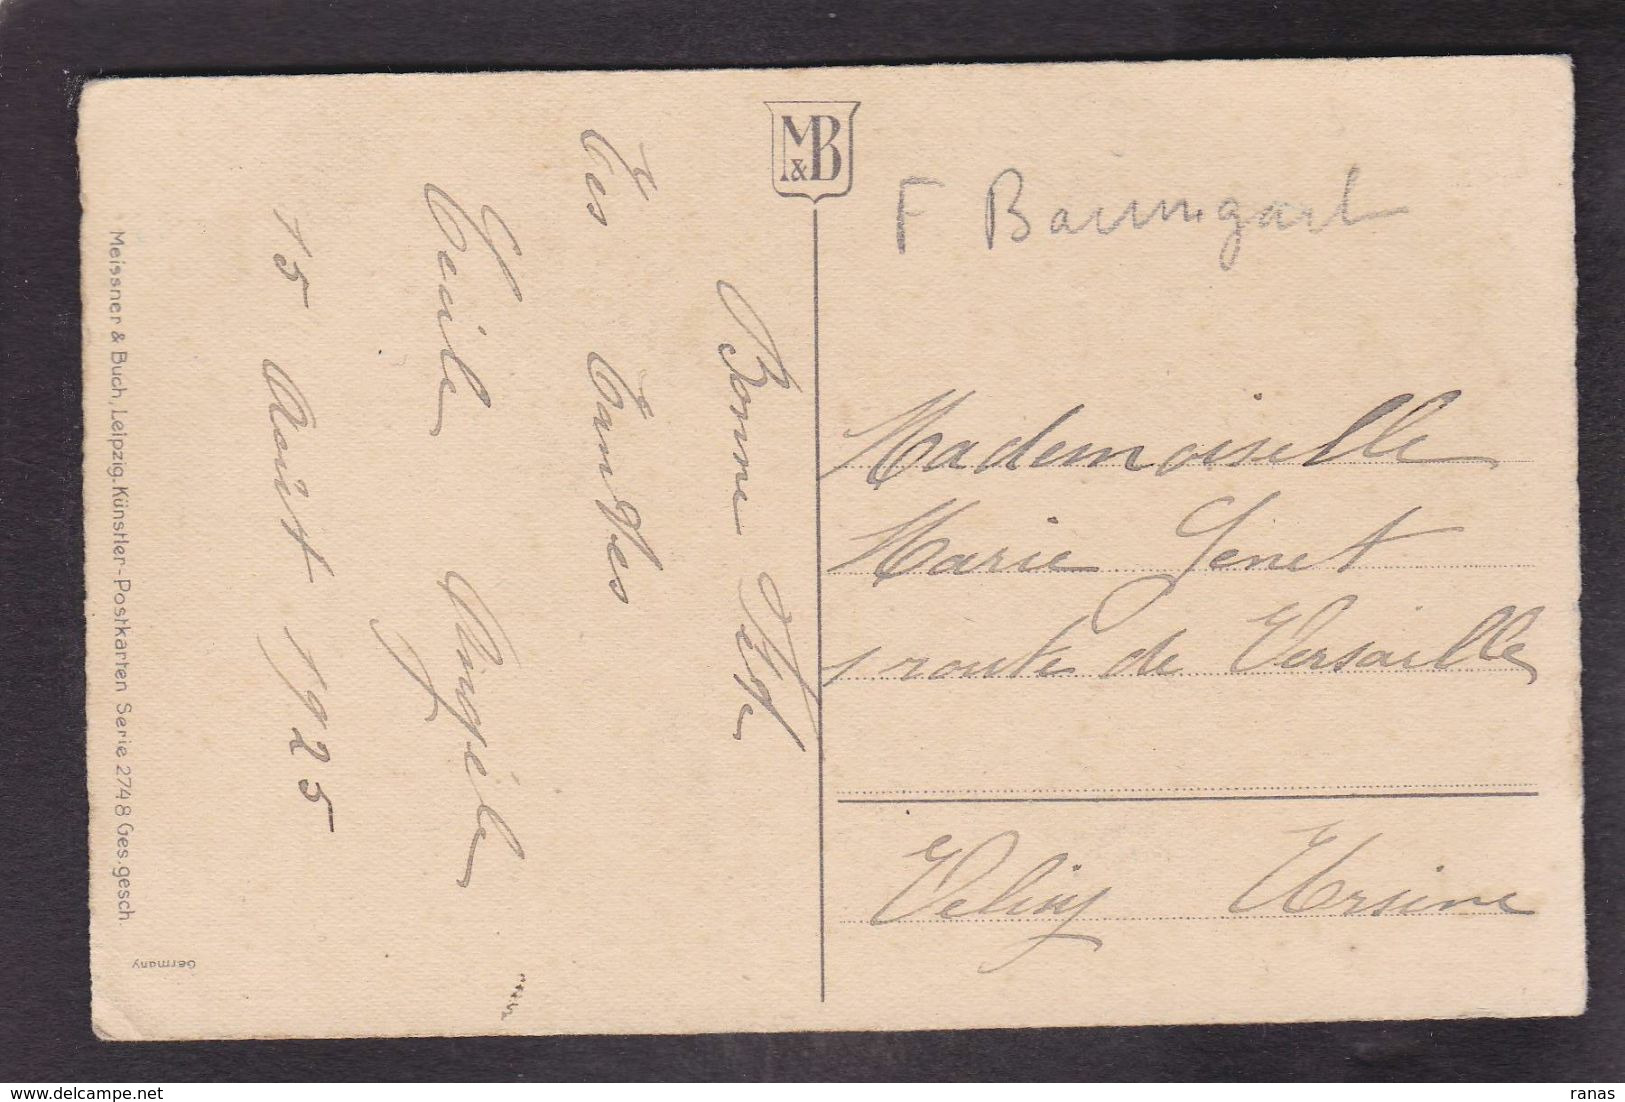 M&B
F Baumgart
Bonne Fête
Tes Tantes
Cécile Angèle
15 Août 1925
Mademoiselle
Marie Genet
1 route de Versailles
Velisy Ursine
Meissner & Buch, Leipzig. Künstler-Postkarten Serie 2748 Ges. gesch.
Germany
www.delcampe.net
ranas